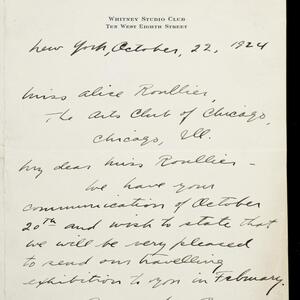 WHITNEY STUDIO CLUB
TEN WEST EIGHTH STREET
New York, October, 22, 1924
Miss Alice Roullier,
The Arts Club of Chicago,
Chicago, Ill.
My dear Miss Roullier –
We have your
communication of October
20TH and wish to state that
we will be very pleased
to send our travelling
exhibition to you in February.